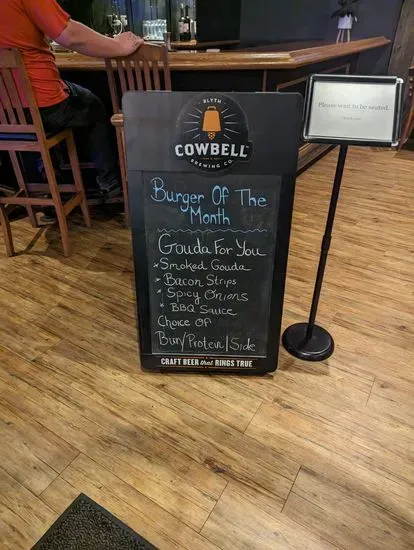 BLYTH
COWBELL
BREWING CO.
Burger Of The
Month
Gouda For You
* Smoked Gouda
* Bacon Strips
* Spicy Onions
* BBQ Sauce
Choice Of
Bun/Protein/Side
CRAFT BEER that RINGS TRUE
Please wait to be seated.